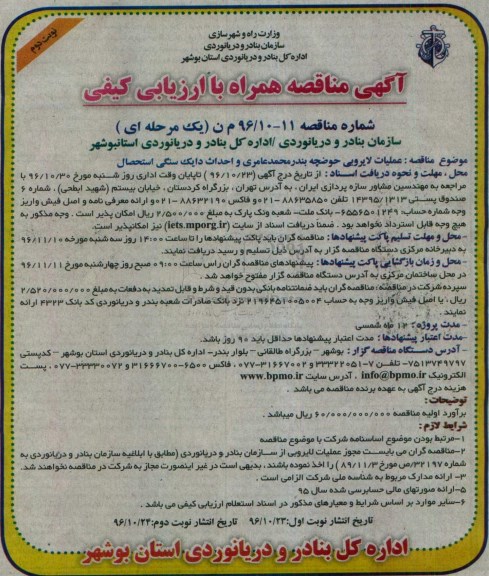 نوبت دوم
وزارت راه و شهرسازی
سازمان بنادر و دریانوردی
اداره کل بنادر و دریانوردی استان بوشهر
آگهی مناقصه همراه با ارزیابی کیفی
شماره مناقصه ۱۱-۹۶/۱۰ م ن (یک مرحله ای)
سازمان بنادر و دریانوردی /اداره کل بنادر و دریانوردی استانبوشهر
موضوع مناقصه : عملیات لایروبی حوضچه بندرمحمدعامری و احداث دایک سنگی استحصال
محل ، مهلت و نحوه دریافت اسناد : از تاریخ درج آگهی (۹۶/۱۰/۲۳) تاپایان وقت اداری روز شنبه مورخ ۹۶/۱۰/۳۰ با
مراجعه به مهندسین مشاور سازه پردازی ایران ، به آدرس تهران ، بزرگراه کردستان ، خیابان بیستم (شهید ابطحی) ، شماره ۶
صندوق پستی ۱۴۳۹۵/۱۳۱۳ تلفن ۸۸۶۳۵۸۵۰-۰۲۱ و فاکس ۸۸۶۳۲۱۹۰-۰۲۱ و ارائه معرفی نامه و اصل فیش واریز
وجه شماره حساب: ۶۵۵۶۵۰۱۲۴۹- بانک ملت- شعبه ونک پارک به مبلغ ۲/۵۰۰/۰۰۰ ریال امکان پذیر است . وجه مذکور به
هیچ وجه قابل استرداد نخواهد بود . ضمناً دریافت اسناد از سایت (iets.mporg.ir) نیز امکانپذیر است.
- محل و مهلت تسلیم پاکت پیشنهادها: مناقصه گران باید پاکت پیشنهادها را تا ساعت ۱۴:۰۰ روز سه شنبه مورخه ۹۶/۱۱/۱۰
به دبیرخانه مرکزی دستگاه مناقصه گزار به آدرس ذیل تسلیم و رسید دریافت نمایند.
- محل و زمان بازگشایی پاکت پیشنهادها : پیشنهادهای مناقصه گران راس ساعت ۰۹:۰۰ صبح روز چهارشنبه مورخ ۹۶/۱۱/۱۱
در محل ساختمان مرکزی به آدرس دستگاه مناقصه گزار مفتوح خواهد شد .
سپرده شرکت در مناقصه: مناقصه گران باید ضمانتنامه بانکی بدون قید و شرط و قابل تمدید به دفعات به مبلغ ۲/۵۲۰/۰۰۰/۰۰۰
ریال ، یا اصل فیش واریز وجه به حساب ۲۱۹۶۴۵۱۰۰۵۰۰۴ نزد بانک صادرات شعبه بندر و دریانوردی کد بانک ۴۳۲۳ ارائه
نمایند .
- مدت پروژه : ۱۲ ماه شمسی
-مدت اعتبار پیشنهادها : مدت اعتبار پیشنهادها حداقل باید ۹۰ روز باشد.
- آدرس دستگاه مناقصه گزار : بوشهر - بزرگراه طالقانی - بلوار بندر- اداره کل بنادر و دریانوردی استان بوشهر - کدپستی
۷۵۱۳۷۴۹۷۹۷- تلفن ۷-۳۳۳۲۲۰۵۱ و ۳۱۶۶۷۰۰۲-۰۷۷ ، فاکس ۶۵۰۰-۳۱۶۶۷۰۰ و ۳۳۳۳۰۰۷۲-۰۷۷ ، پست
الکترونیک info@bpmo.ir ، آدرس سایت www.bpmo.ir
هزینه درج آگهی به عهده برنده مناقصه می باشد .
توضیحات :
برآورد اولیه مناقصه ۶۰/۰۰۰/۰۰۰/۰۰۰ ریال میباشد .
شرایط لازم :
۱-مرتبط بودن موضوع اساسنامه شرکت با موضوع مناقصه
۲-مناقصه گران می بایست مجوز عملیات لایروبی از سازمان بنادر و دریانوردی (مطابق با ابلاغیه سازمان بنادر و دریانوردی به
شماره ۳۲۱۹۷/ص مورخ ۸۹/۱۱/۳ ) را اخذ نموده باشند ، بدیهی است در غیر اینصورت مجاز به شرکت در مناقصه نخواهند شد.
۳- ارائه مدارک مربوط به شناسه ملی شرکت الزامی است .
۵-ارائه صورتهای مالی حسابرسی شده سال ۹۵
۶-سایر موارد بر اساس شرایط و معیارهای مذکور در اسناد استعلام ارزیابی کیفی می باشد .
تاریخ انتشار نوبت اول:۹۶/۱۰/۲۳ تاریخ انتشار نوبت دوم: ۹۶/۱۰/۲۴
اداره کل بنادر و دریانوردی استان بوشهر